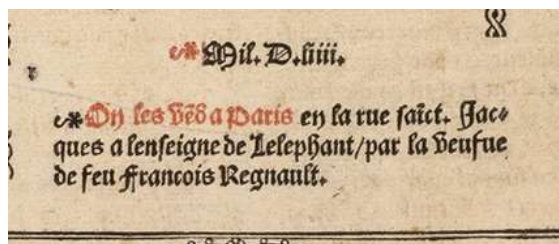 Mil. D. liiii.
On les vẽd a Paris en la rue saĩct. Jac⸗
ques a lenseigne de Lelephant/par la veufue
de feu Francois Regnault.